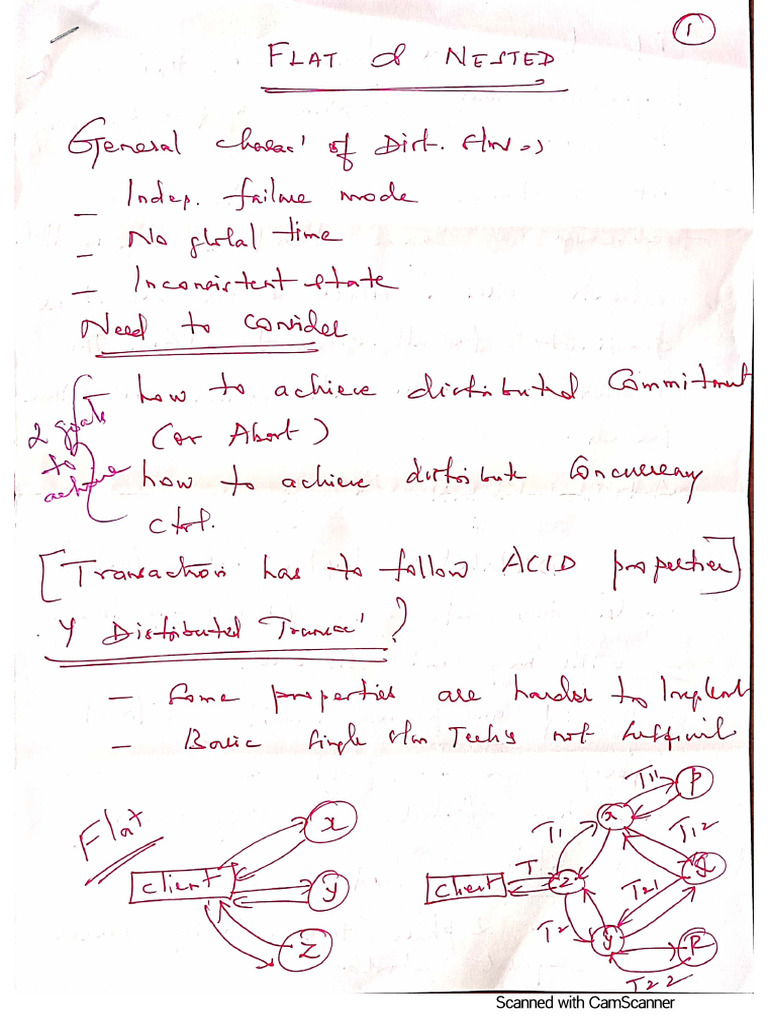 1
FLAT & NESTED
General charac' of Dist. s/m :-
- Indep. failure mode
- No global time
- Inconsistent state
Need to consider
- how to achieve distributed Commitment
(or Abort)
2 goals
to
achieve
how to achieve distribute Concurrency
ctrl.
[Transaction has to follow ACID properties]
Y Distributed Transac' ?
- Some properties are harder to Implent
- Basic Single s/m Techs not sufficient
Flat
client
x
y
z
client
T
z
T1
x
T11
P
T12
T2
y
T21
T22
R
Scanned with CamScanner